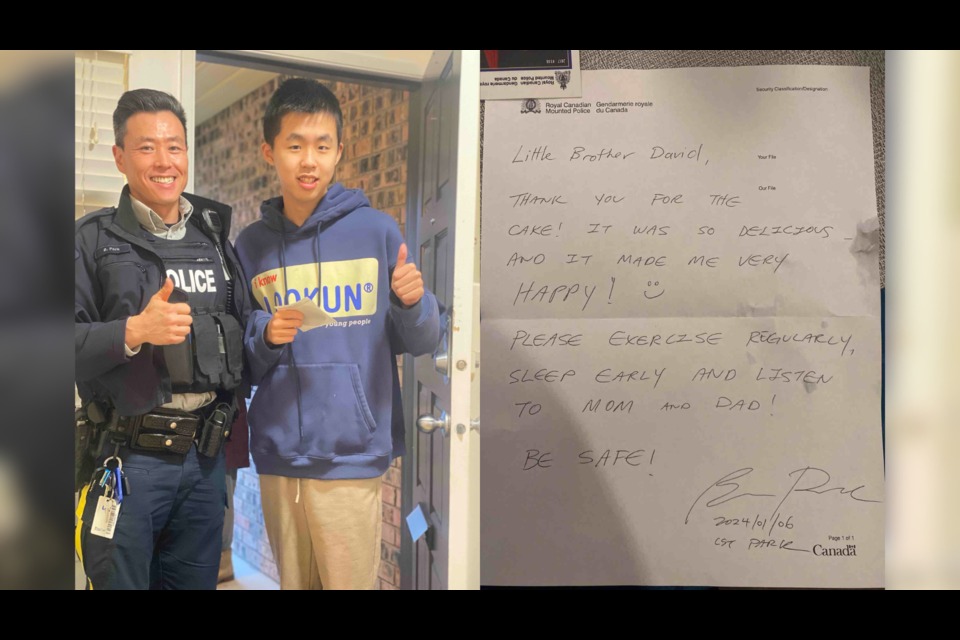 POLICE
I know
LOOKUN®
young people
Royal Canadian Gendarmerie royale
Mounted Police du Canada
Security Classification/Designation
Little Brother David,
Your File
Our File
THANK YOU FOR THE
CAKE! IT WAS SO DELICIOUS
AND IT MADE ME VERY
HAPPY!
PLEASE EXERCISE REGULARLY,
SLEEP EARLY AND LISTEN
TO MOM AND DAD!
BE SAFE!
2024/01/06
CST PARK
Page 1 of 1
Canada